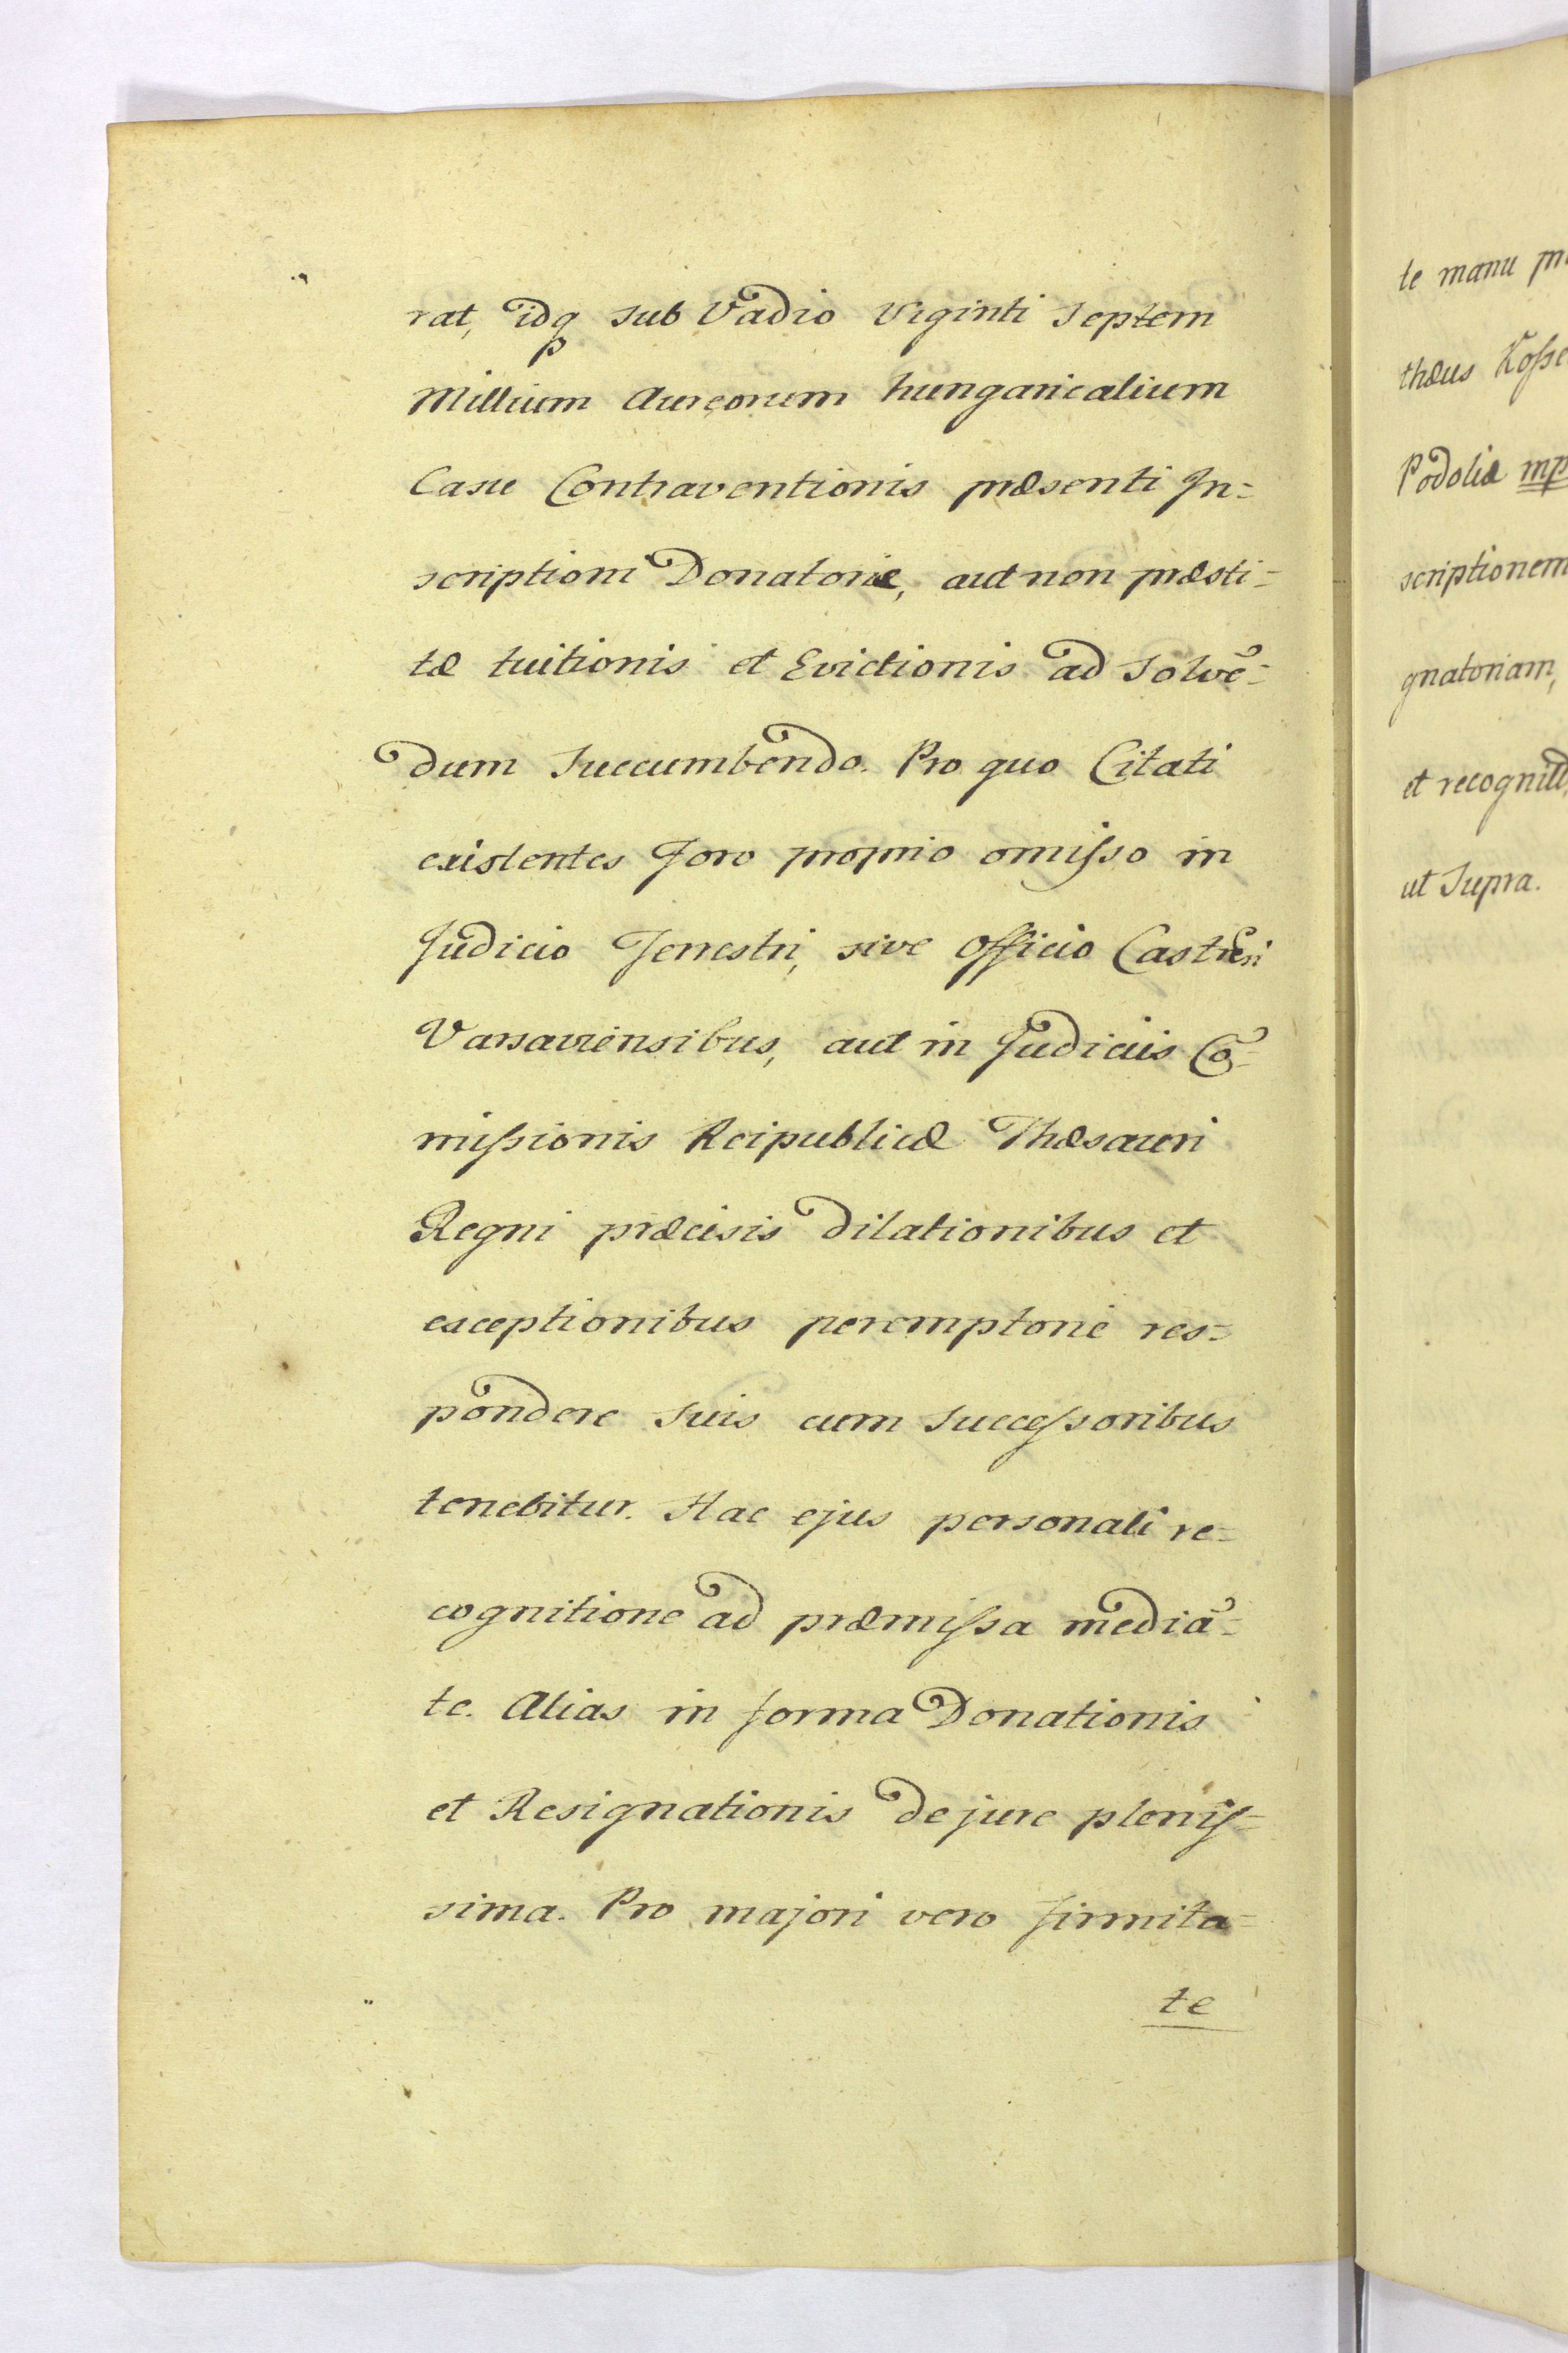 rat, idq sub Vadio Viginti Septem
Millium Aureorum hungaricalium
Casu Contraventionis præsenti In=
scriptioni Donatoriæ, aut non præsti=
tæ tuitionis et Evictionis ad Solvē=
dum Succumbendo. Pro quo Citati
existentes Foro proprio omisso in
Judicio Terrestri, sive Officio Castren
Varsaviensibus, aut in Judiciis Cō=
missionis Reipublicæ Thæsauri
Regni præcisis dilationibus et
exceptionibus peremptorie res=
pondere Suis cum Successoribus
tenebitur. Hac ejus personali re=
cognitione ad præmissa mediā=
te. Alias in forma Donationis
et Resignationis de jure plenis=
sima. Pro majori vero firmita=
te
te manu
thæus
Podoliæ mp
scriptionem
gnatoriam,
et recognitt,
ut Supra.